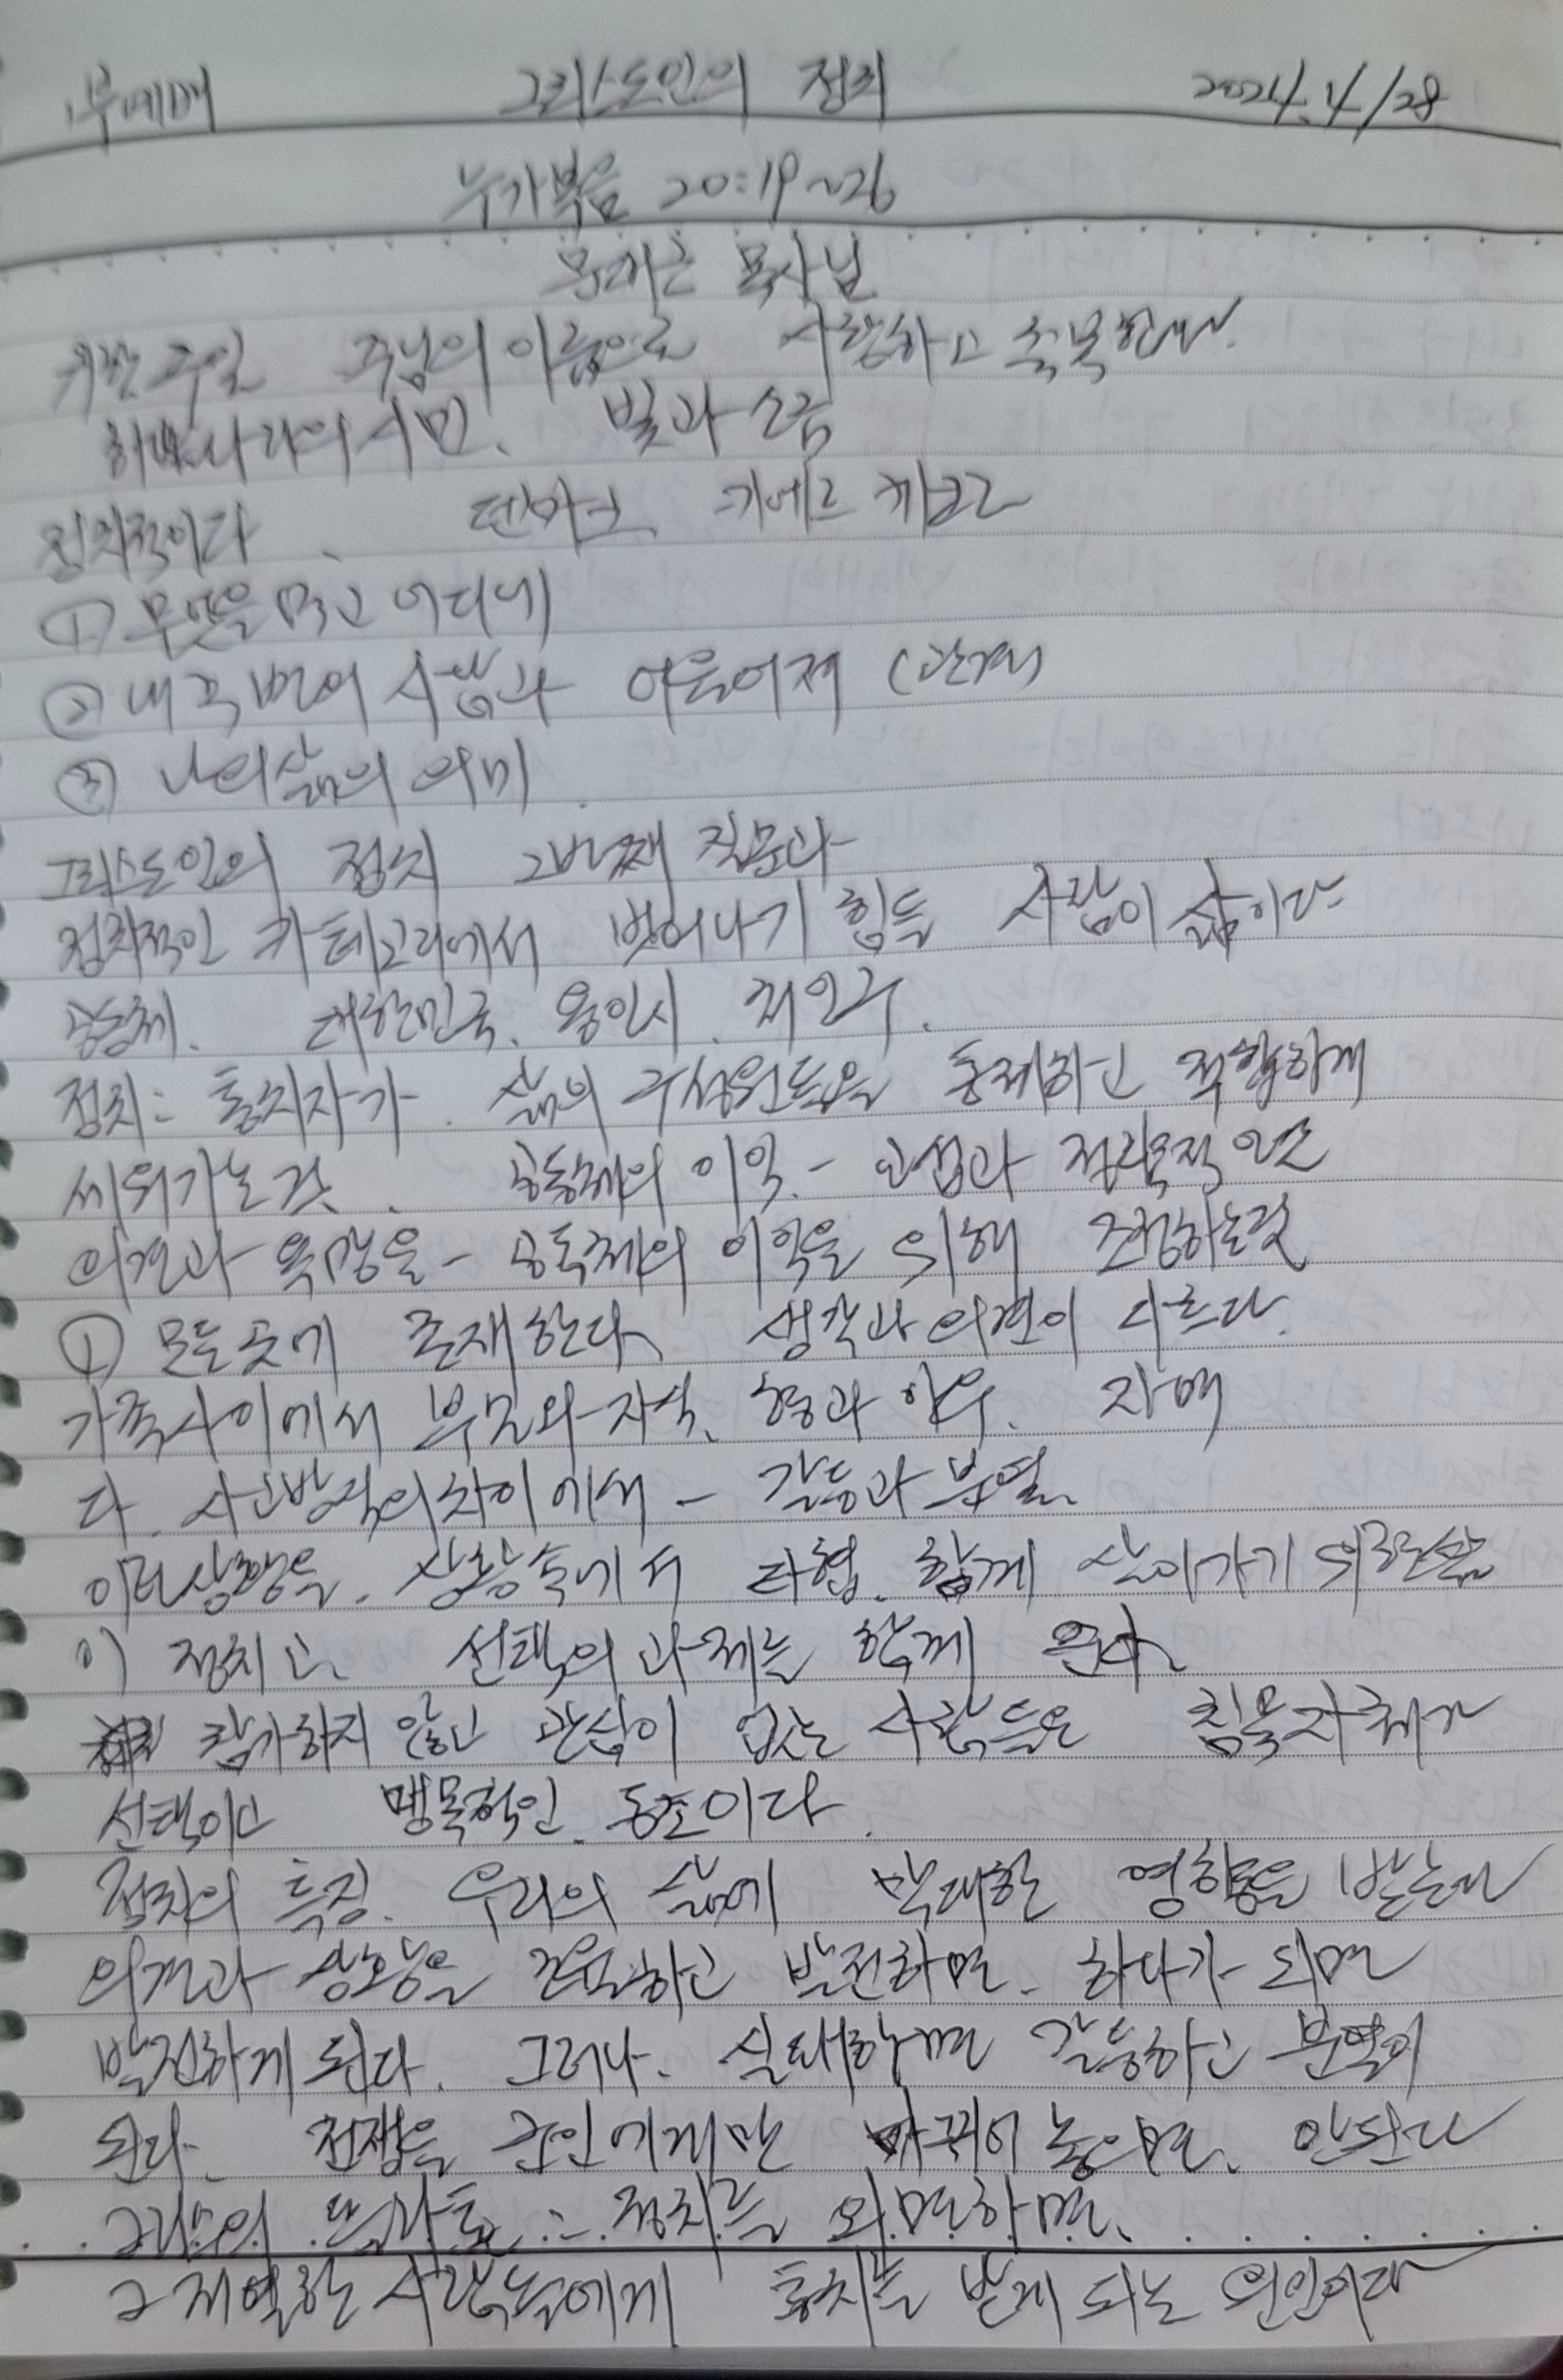 1부예배 그리스도인의 정치 2024. 4/28
누가복음 20:19~26
목사님
귀한 주일 주님의 이름으로 사랑하고 축복한다.
하나님나라의 시민. 빛과 소금
정치적이다. 덴마크 키에르케고르
① 무엇을 먹고 어디에
② 내 주변의 사람과 어울어져 (관계)
③ 나의 삶의 의미.
그리스도인의 정치 2번째 질문과
정치적인 카테고리에서 벗어나기 힘들 사람이 삶이다
공동체. 대한민국. 용인시. 처인구.
정치: 통치자가. 삶의 구성원들을 통제하고 적합하게
세워가는 것. 공동체의 이익. - 간섭과
의견과 욕망을 - 공동체의 이익을 위해 조정하는것
① 모든곳에 존재한다 생각과 의견이 다르다.
가족사이에서 부모와 자식. 형과 아우. 자매
다. 사고방식의 차이에서 - 갈등과 분열.
이런상황을. 상황속에서 타협. 함께 살아가기 위한
이 정치고. 선택의 과제는 함께 온다
참가하지 않고 관심이 없는 사람들은 침묵자체가
선택이고 맹목적인. 동조이다.
정치의 특징. 우리의 삶에 막대한 영향을 받는다
의견과 상황을 조율하고 발전하면. 하나가 되면
발전하게 된다. 그러나. 실패하면 갈등하고 분열이
된다. 전쟁을 군인에게만 바꾸어 놓으면. 안된다
그리스의 플라톤 : 정치를 외면하면.
그 저열한 사람들에게 통치를 받게 되는 원인이다